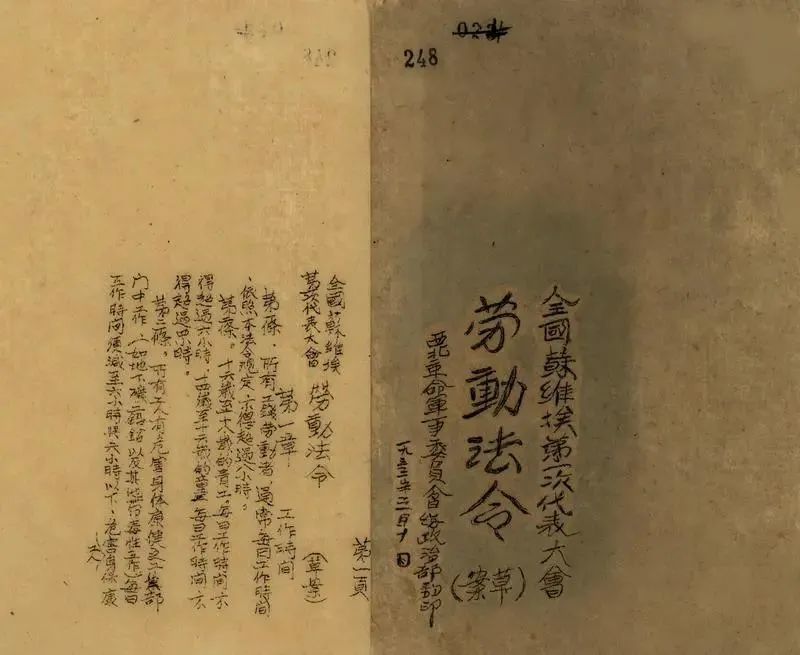 248
全國蘇維埃第一次代表大會
劳動法令
(草案)
西北革命軍事委員會總政治部翻印
月十日
第一頁
全國蘇維埃
第一次代表大會
勞動法令
(草案)
第一章 工作時间
第一條、所有工錢劳動者,通常每日工作時间
依照本法令規定、不得超過八小時。
第二條。十六歲至十八歲的青工。每日工作時间、不
得超过六小時、十四歲至十六歲的童工每日工作時间、不
得超過四小時。
第三條。所有工人有危害身体康健之工業部
门中工作、(如地下礦工 以及其他 毒性工作)每日
工作時间須減至六小時 六小時以下、危害身体康